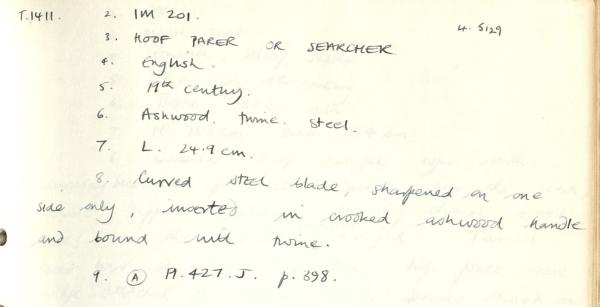 T.1411. 2. IM 201. 4. S129
3. HOOF PARER OR SEARCHER
4. English.
5. 19th century.
6. Ashwood. twine. steel.
7. L. 24.9 cm.
8. Curved steel blade, sharpened on one
side only, inserted in crooked ashwood handle
and bound with twine.
9. A Pl. 427. J. p. 398.